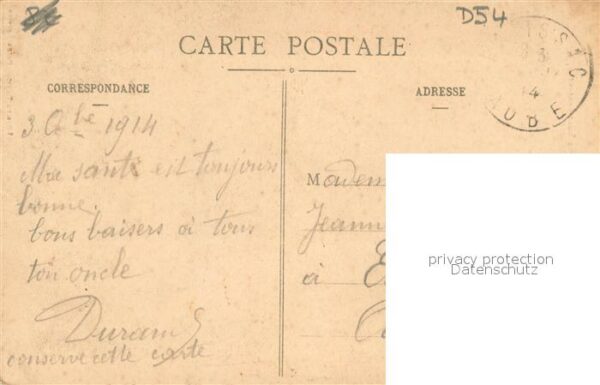 D54
CARTE POSTALE
CORRESPONDANCE
ADRESSE
3 Obe 1914
Ma santé est toujours
bonne.
bons baisers à tous
ton oncle
Durand
conserve cette carte
Madem
Jeann
à E
AUBE
privacy protection
Datenschutz